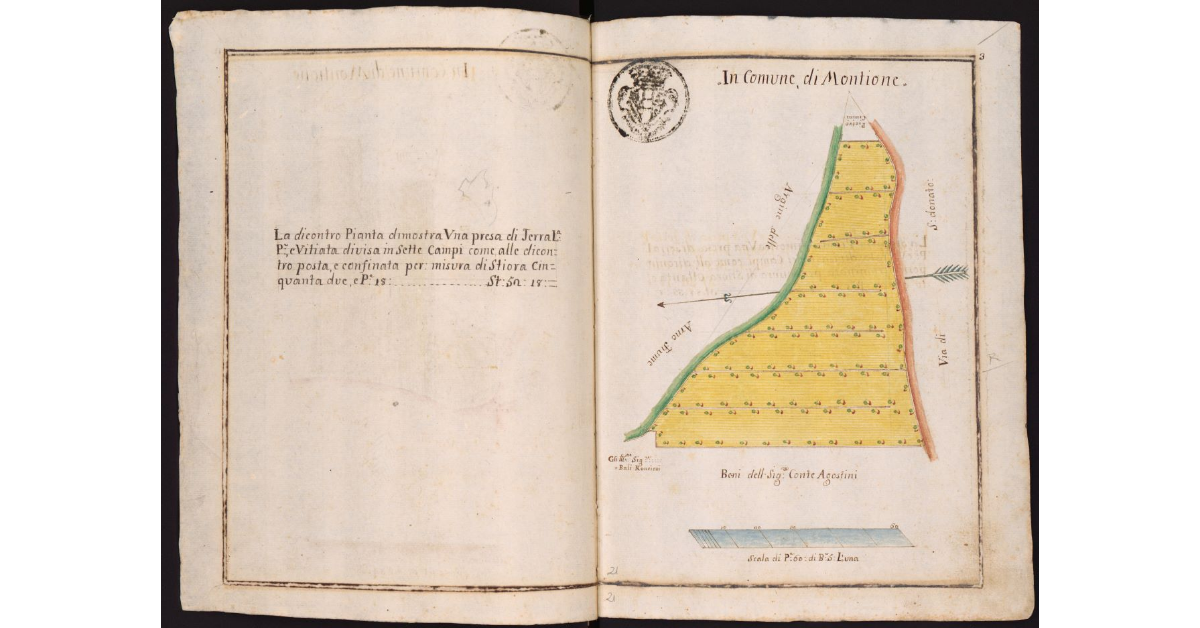 La dicontro Pianta dimostra Vna presa di Terra Lᵃ:
Pᵃ: e Vitiata divisa in Sette Campi come, alle dicon=
tro posta, e confinata per: misura di Stiora Cin=
quanta due, e Pᵃ 18: ............ St: 52: 18:=
3
.In Comune, di Montione.
Argine delle
S: donato:
Arno Fiume
Via di
Beni dell Sigᵉ: Conte Agostini
50
Scala di Pᵉ 60: di Bᵃ S: Luna
21
21